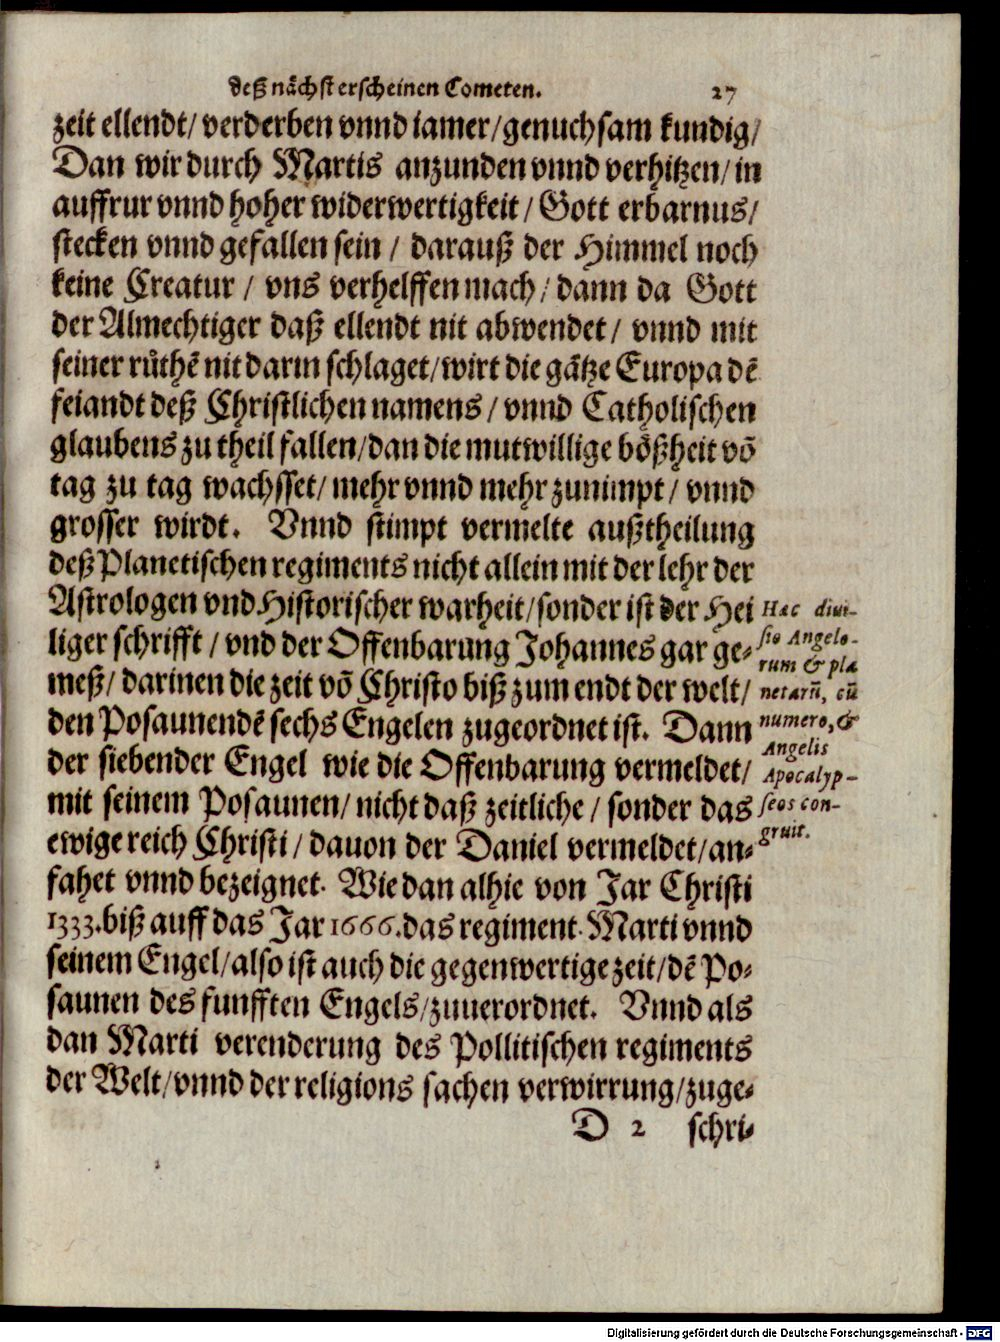 deß nächst erscheinen Cometen. 27
zeit ellendt/ verderben vnnd iamer/genuchsam kundig/
Dan wir durch Martis anzunden vnnd verhitzen/ in
auffrur vnnd hoher widerwertigkeit/ Gott erbarnus/
stecken vnnd gefallen sein / darauß der Himmel noch
keine Creatur / vns verhelffen mach/ dann da Gott
der Almechtiger daß ellendt nit abwendet/ vnnd mit
seiner růthē nit darin schlaget/wirt die gātze Europa dē
feiandt deß Christlichen namens / vnnd Catholischen
glaubens zu theil fallen/dan die mutwillige bößheit vō
tag zu tag wachsset/ mehr vnnd mehr zunimpt / vnnd
grosser wirdt. Vnnd stimpt vermelte außtheilung
deß Planetischen regiments nicht allein mit der lehr der
Astrologen vnd Historischer warheit/sonder ist der Hei
liger schrifft / vnd der Offenbarung Johannes gar ge-
meß/ darinen die zeit vō Christo biß zum endt der welt/
den Posaunendē sechs Engelen zugeordnet ist. Dann
der siebender Engel wie die Offenbarung vermeldet/
mit seinem Posaunen/ nicht daß zeitliche / sonder das
ewige reich Christi / dauon der Daniel vermeldet/an-
fahet vnnd bezeignet. Wie dan alhie von Jar Christi
1333.biß auff das Jar 1666.das regiment Marti vnnd
seinem Engel/also ist auch die gegenwertige zeit/dē Po-
saunen des funfften Engels/zuuerordnet. Vnnd als
dan Marti verenderung des Pollitischen regiments
der Welt/vnnd der religions sachen verwirrung/zuge-
D 2 schri-
Hac diui-
sio Angelo-
rum & pla
netarū, cū
numero, &
Angelis
Apocalyp-
seos con-
gruit.
Digitalisierung gefördert durch die Deutsche Forschungsgemeinschaft - DFG